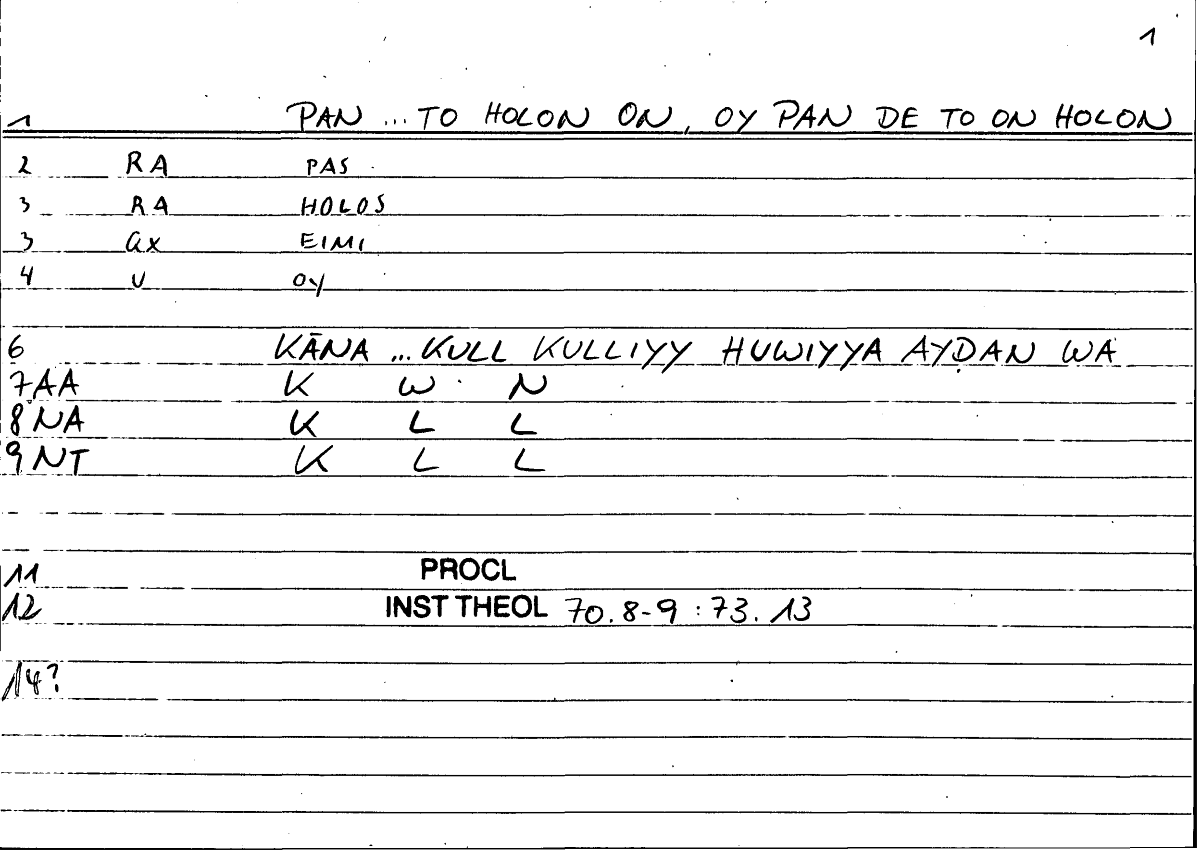 1
1 PAN ... TO HOLON ON, OY PAN DE TO ON HOLON
2 RA PAS
3 RA HOLOS
3 GX EIMI
4 U OY
6 KĀNA ... KULL KULLIYY HUWIYYA AYḌAN WA
7AA K W N
8NA K L L
9NT K L L
11 PROCL
12 INST THEOL 70.8-9 : 73.13
14?